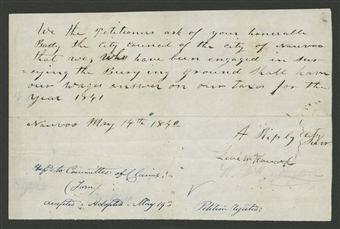 We the Petitioners ask of your honorable
Body the City council of the city of Nauvoo
that we, Who have been engaged in Sur
veying the Burying ground Shall have
our wages answer on our taxes for the
Year 1841
Nauvoo May 14th 1842
A Ripley
Levi W Hancock
Refd to Committee of Claims;
accepted; Adopted; May 14
Petition rejected;